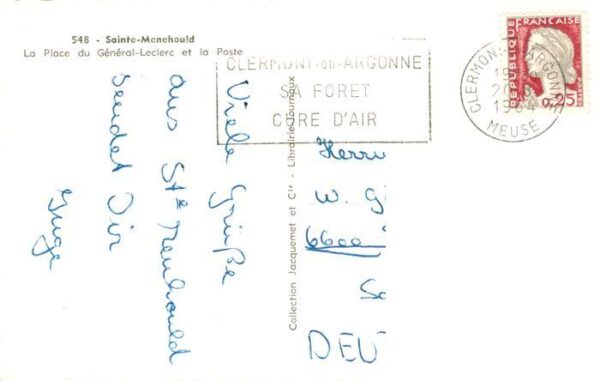 548 - Sainte-Menehould
La Place du Général-Leclerc et la Poste
CLERMONT-en-ARGONNE
SA FORET
CURE D'AIR
RÉPUBLIQUE
FRANÇAISE
0,25
CLERMONT ARGONNE
1964
MEUSE
Viele Grüße
aus Ste Menehould
sendet Dir
Collection Jacquemet et Cie - Librairie-Journaux
Herrn
W. G
6600
Sa
DEUT